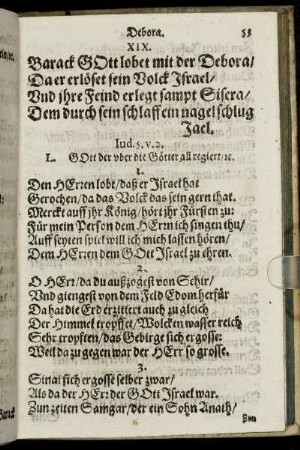 Debora. 53
XIX.
Barack GOtt lobet mit der Debora/
Da er erlöset sein Volck Israel/
Vnd jhre Feind erlegt sampt Sisera/
Dem durch sein schlaff ein nagel schlug
Jael.
Iud. 5. v. 2.
L. GOtt der vber die Götter all regiert/ ꝛc.
1.
Den HErren lobt/ daß er Israel hat
Gerochen/ da das Volck das sein gern that.
Merckt auff jhr König/ hört jhr Fürsten zu:
Für mein Person dem HErrn ich singen thu/
Auff seyten spiel will ich mich lassen hören/
Dem HErren dem GOtt Israel zu ehren.
2.
O HErr/ da du außzogest von Sehir/
Vnd giengest von dem Feld Edom herfür
Da hat die Erd erzittert auch zu gleich
Der Himmel tropffet/ Wolcken wasser reich
Sehr tropfften/ das Gebirge sich ergosse:
Weil da zu gegen war der HErr so grosse.
3.
Sinai sich ergosse selber zwar/
Als da der HErr der GOtt Israel war.
Zun zeiten Samgar/ der ein Sohn Anath/
Zun